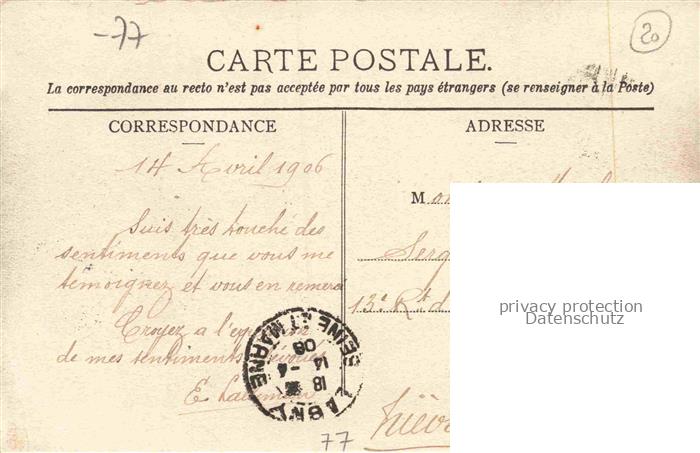 -77
20
CARTE POSTALE.
La correspondance au recto n'est pas acceptée par tous les pays étrangers (se renseigner à la Poste)
CORRESPONDANCE
14 Avril 1906
Suis très touché des
sentiments que vous me
témoignez et vous en remerci
Croyez a l'
de mes sentiments dévoués
E.
ADRESSE
M
Serg
13e Rt d
privacy protection
Datenschutz
LAGNY
SEINE ET MARNE
18
14 -4
06
77